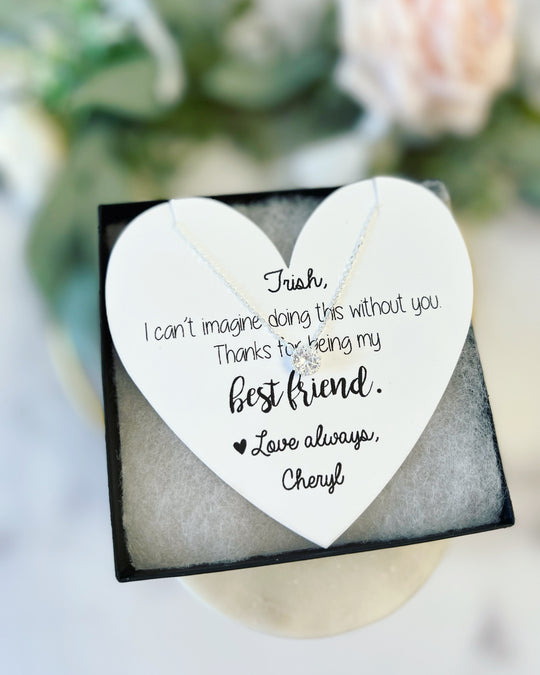 Trish,
I can't imagine doing this without you.
Thanks for being my
best friend.
♥ Love always,
Cheryl